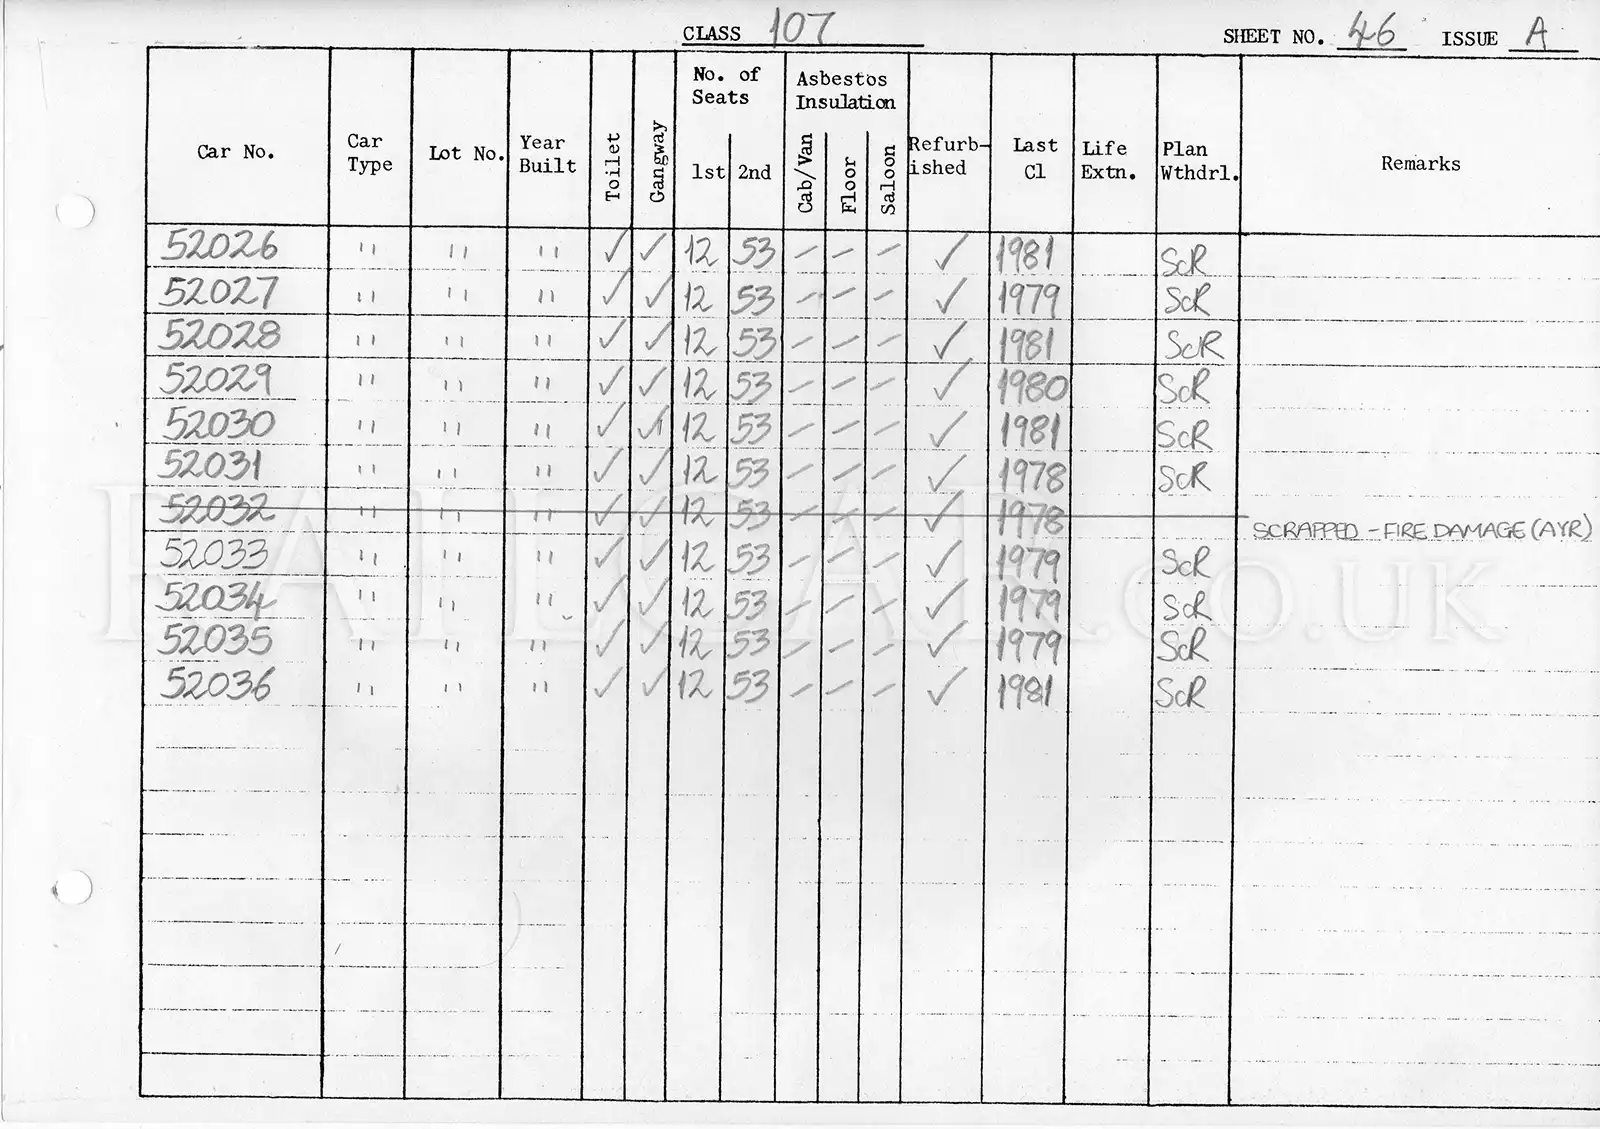 CLASS 107 SHEET NO. 46 ISSUE A
Car No. Car Type Lot No. Year Built Toilet Gangway No. of Seats 1st 2nd Asbestos Insulation Cab/Van Floor Saloon Refurb-ished Last Cl Life Extn. Plan Wthdrl. Remarks
52026 " " " ✓ ✓ 12 53 – – – ✓ 1981 ScR
52027 " " " ✓ ✓ 12 53 – – – ✓ 1979 ScR
52028 " " " ✓ ✓ 12 53 – – – ✓ 1981 ScR
52029 " " " ✓ ✓ 12 53 – – – ✓ 1980 ScR
52030 " " " ✓ ✓ 12 53 – – – ✓ 1981 ScR
52031 " " " ✓ ✓ 12 53 – – – ✓ 1978 ScR
52032 " " " ✓ ✓ 12 53 – – – ✓ 1978 SCRAPPED – FIRE DAMAGE (AYR)
52033 " " " ✓ ✓ 12 53 – – – ✓ 1979 ScR
52034 " " " ✓ ✓ 12 53 – – – ✓ 1979 ScR
52035 " " " ✓ ✓ 12 53 – – – ✓ 1979 ScR
52036 " " " ✓ ✓ 12 53 – – – ✓ 1981 ScR
RAILCAR.CO.UK